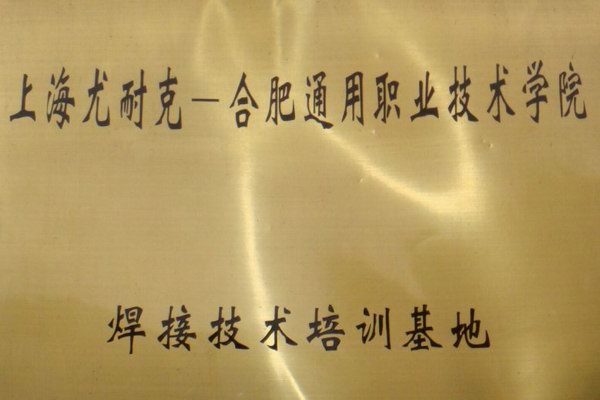 上海尤耐克—合肥通用职业技术学院
焊接技术培训基地